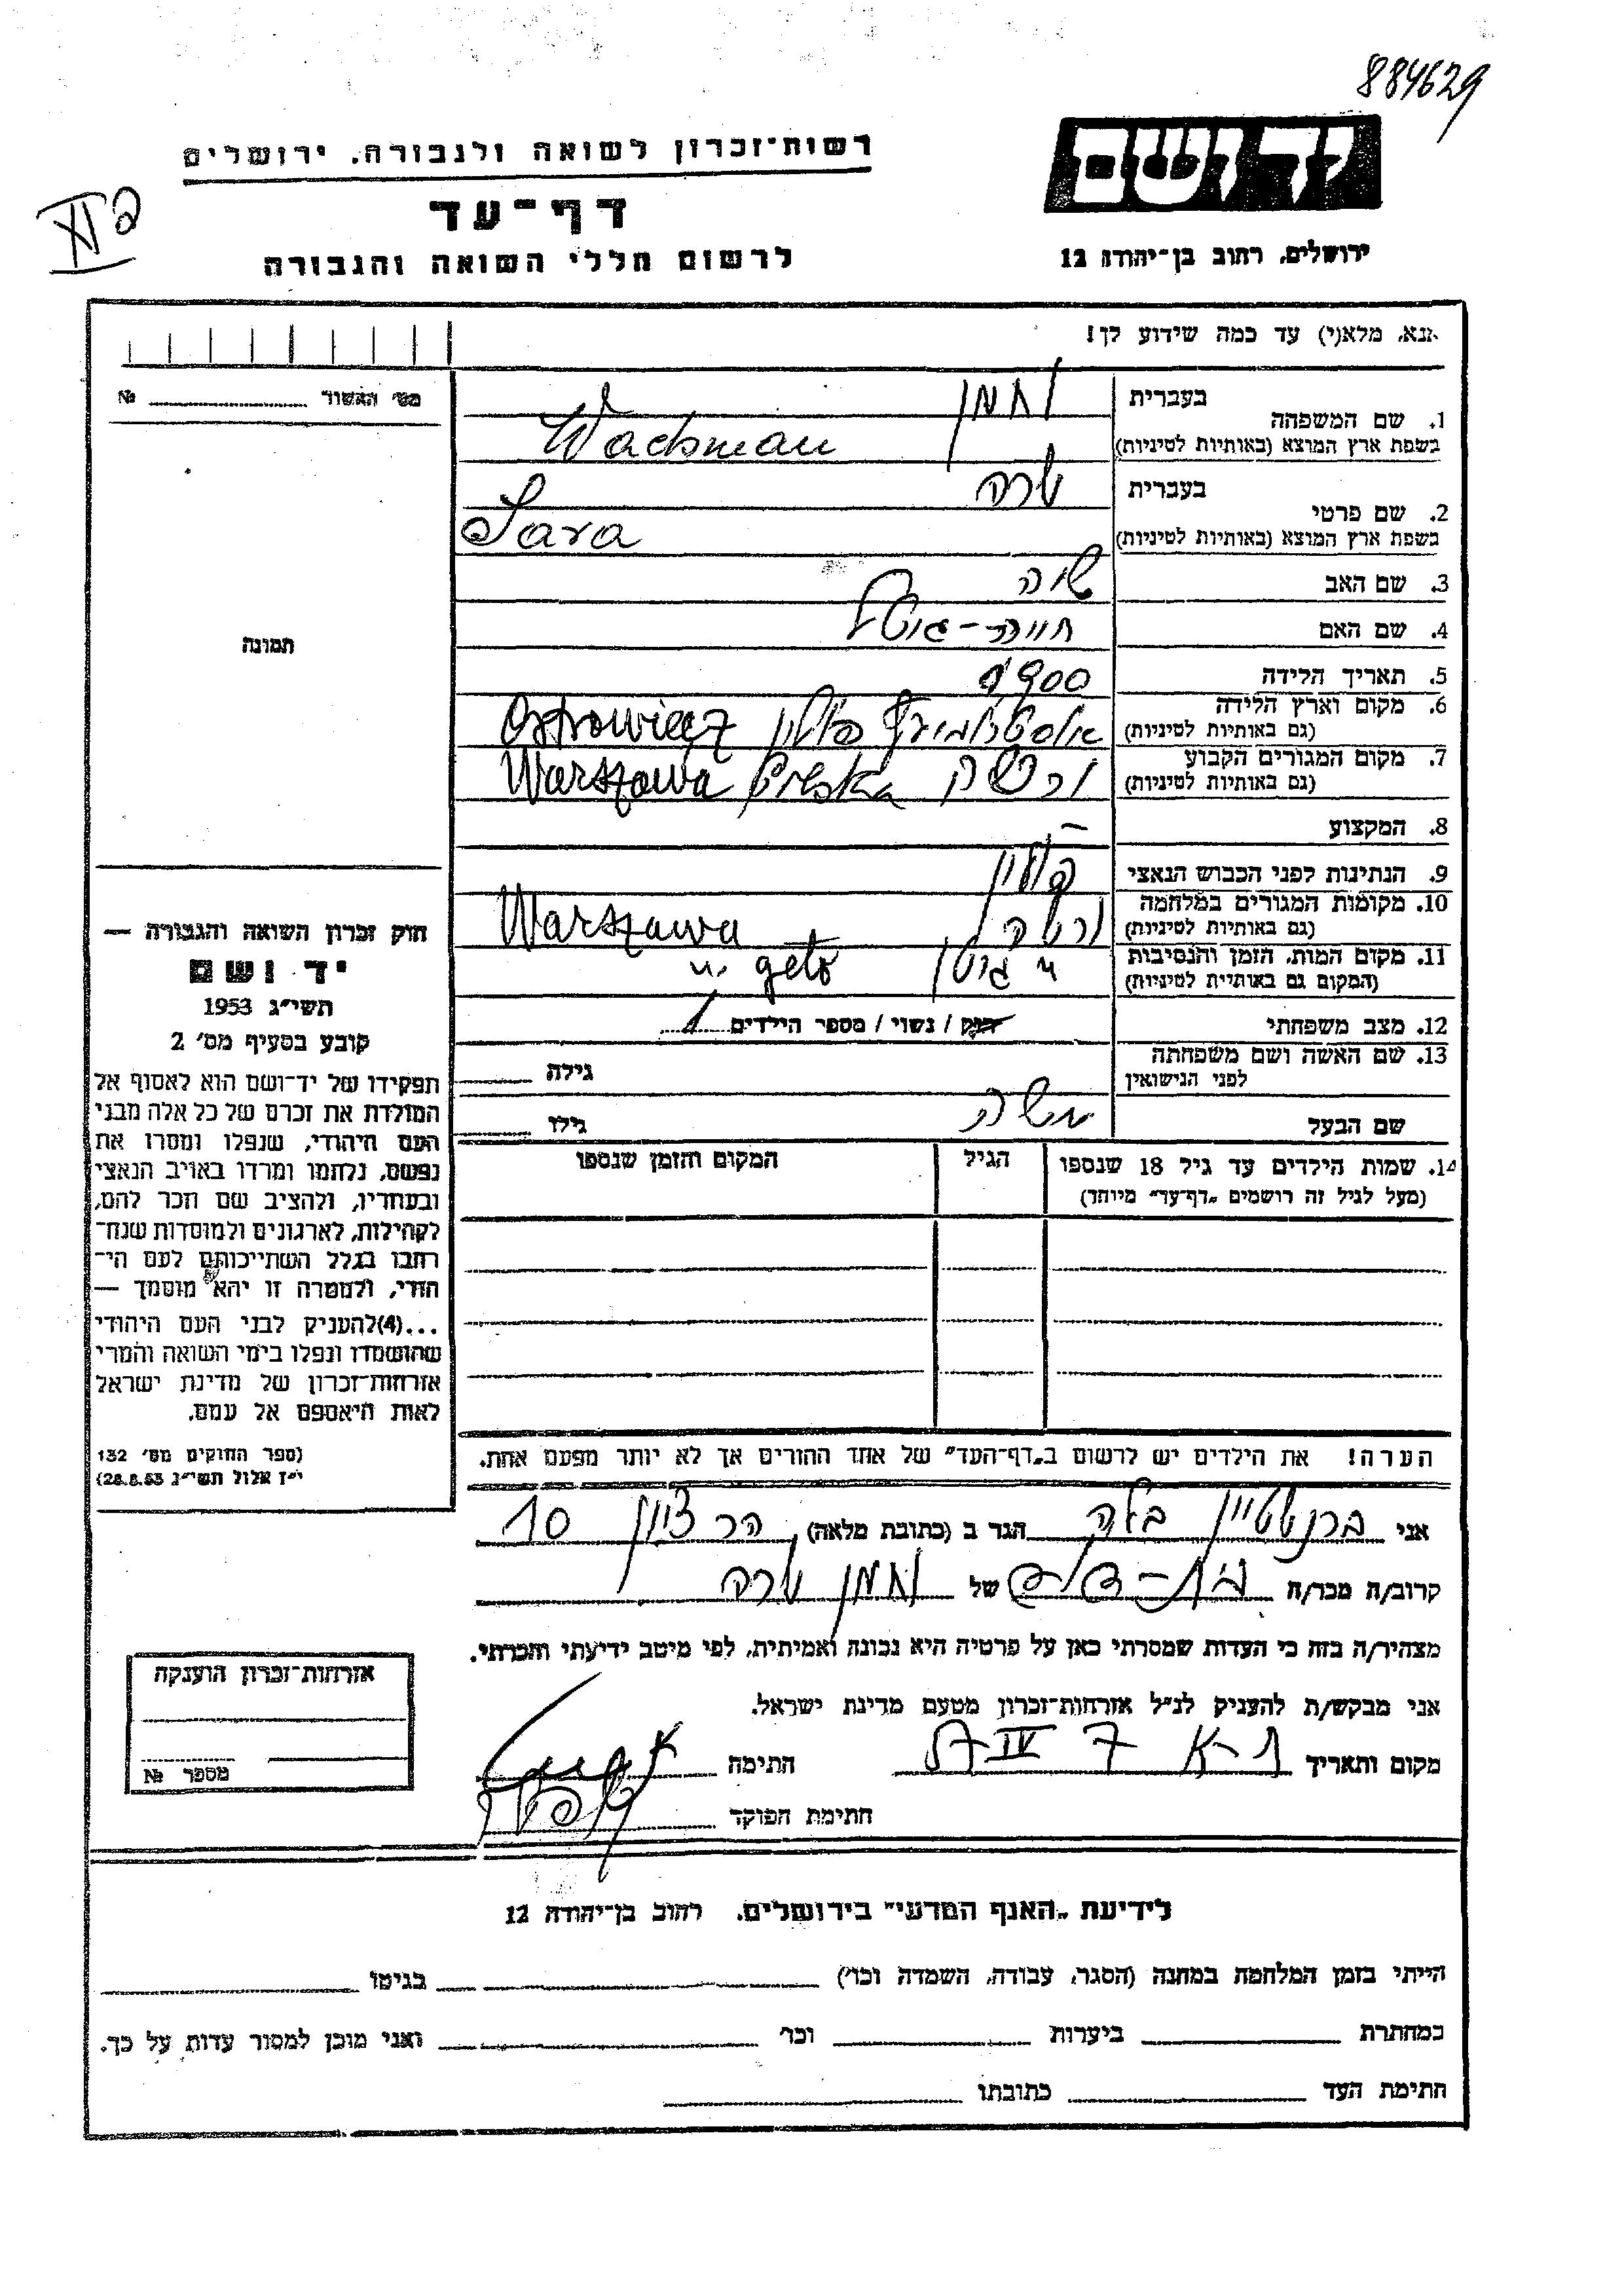 884629
יד ושם
רשות־זכרון לשואה ולגבורה, ירושלים
דף־עד
לרשום חללי השואה והגבורה
ירושלים, רחוב בן־יהודה 12
אנא, מלא(י) עד כמה שידוע לך!
מס׳ האשור № 
בעברית
1. שם המשפחה
בשפת ארץ המוצא (באותיות לטיניות) Wachsman
בעברית שרה
2. שם פרטי
בשפת ארץ המוצא (באותיות לטיניות) Sara
3. שם האב
4. שם האם
5. תאריך הלידה 1900
6. מקום וארץ הלידה
(גם באותיות לטיניות) פולין Ostrowiecz
7. מקום המגורים הקבוע
(גם באותיות לטיניות) ורשה Polska Warszawa
8. המקצוע –
9. הנתינות לפני הכבוש הנאצי פולין
10. מקומות המגורים במלחמה
(גם באותיות לטיניות) ורשה Warszawa
11. מקום המות, הזמן והנסיבות
(המקום גם באותיות לטיניות) geto
12. מצב משפחתי רווק / נשוי / מספר הילדים 1
13. שם האשה ושם משפחתה
לפני הנישואין גילה
שם הבעל משה גילו
14. שמות הילדים עד גיל 18 שנספו הגיל המקום והזמן שנספו
(מעל לגיל זה רושמים „דף־עד” מיוחד)
הערה! את הילדים יש לרשום ב„דף־העד” של אחד ההורים אך לא יותר מפעם אחת.
תמונה
חוק זכרון השואה והגבורה —
יד ושם
תשי״ג 1953
קובע בסעיף מס׳ 2
תפקידו של יד־ושם הוא לאסוף אל
המולדת את זכרם של כל אלה מבני
העם היהודי, שנפלו ומסרו את
נפשם, נלחמו ומרדו באויב הנאצי
ובעוזריו, ולהציב שם וזכר להם,
לקהילות, לארגונים ולמוסדות שנח־
רבו בגלל השתייכותם לעם הי־
הודי, ולמטרה זו יהא מוסמך —
...(4)להעניק לבני העם היהודי
שהושמדו ונפלו בימי השואה והמרי
אזרחות־זכרון של מדינת ישראל
לאות היאספם אל עמם.
(ספר החוקים מס׳ 132
י״ז אלול תשי״ג 28.8.53)
אני ברנשטיין בלה הגר ב (כתובת מלאה) הר ציון 10
קרוב/ה מכר/ה של שרה
מצהיר/ה בזה כי העדות שמסרתי כאן על פרטיה היא נכונה ואמיתית, לפי מיטב ידיעתי והכרתי.
אני מבקש/ת להעניק לנ״ל אזרחות־זכרון מטעם מדינת ישראל.
מקום ותאריך ת-א 7 IV חתימה
חתימת הפוקד
אזרחות־זכרון הוענקה
מספר №
לידיעת „האגף המדעי” בירושלים, רחוב בן־יהודה 12
הייתי בזמן המלחמה במחנה (הסגר, עבודה, השמדה וכו׳) בגיטו
במחתרת ביערות וכו׳ ואני מוכן למסור עדות על כך.
חתימת העד כתובתו